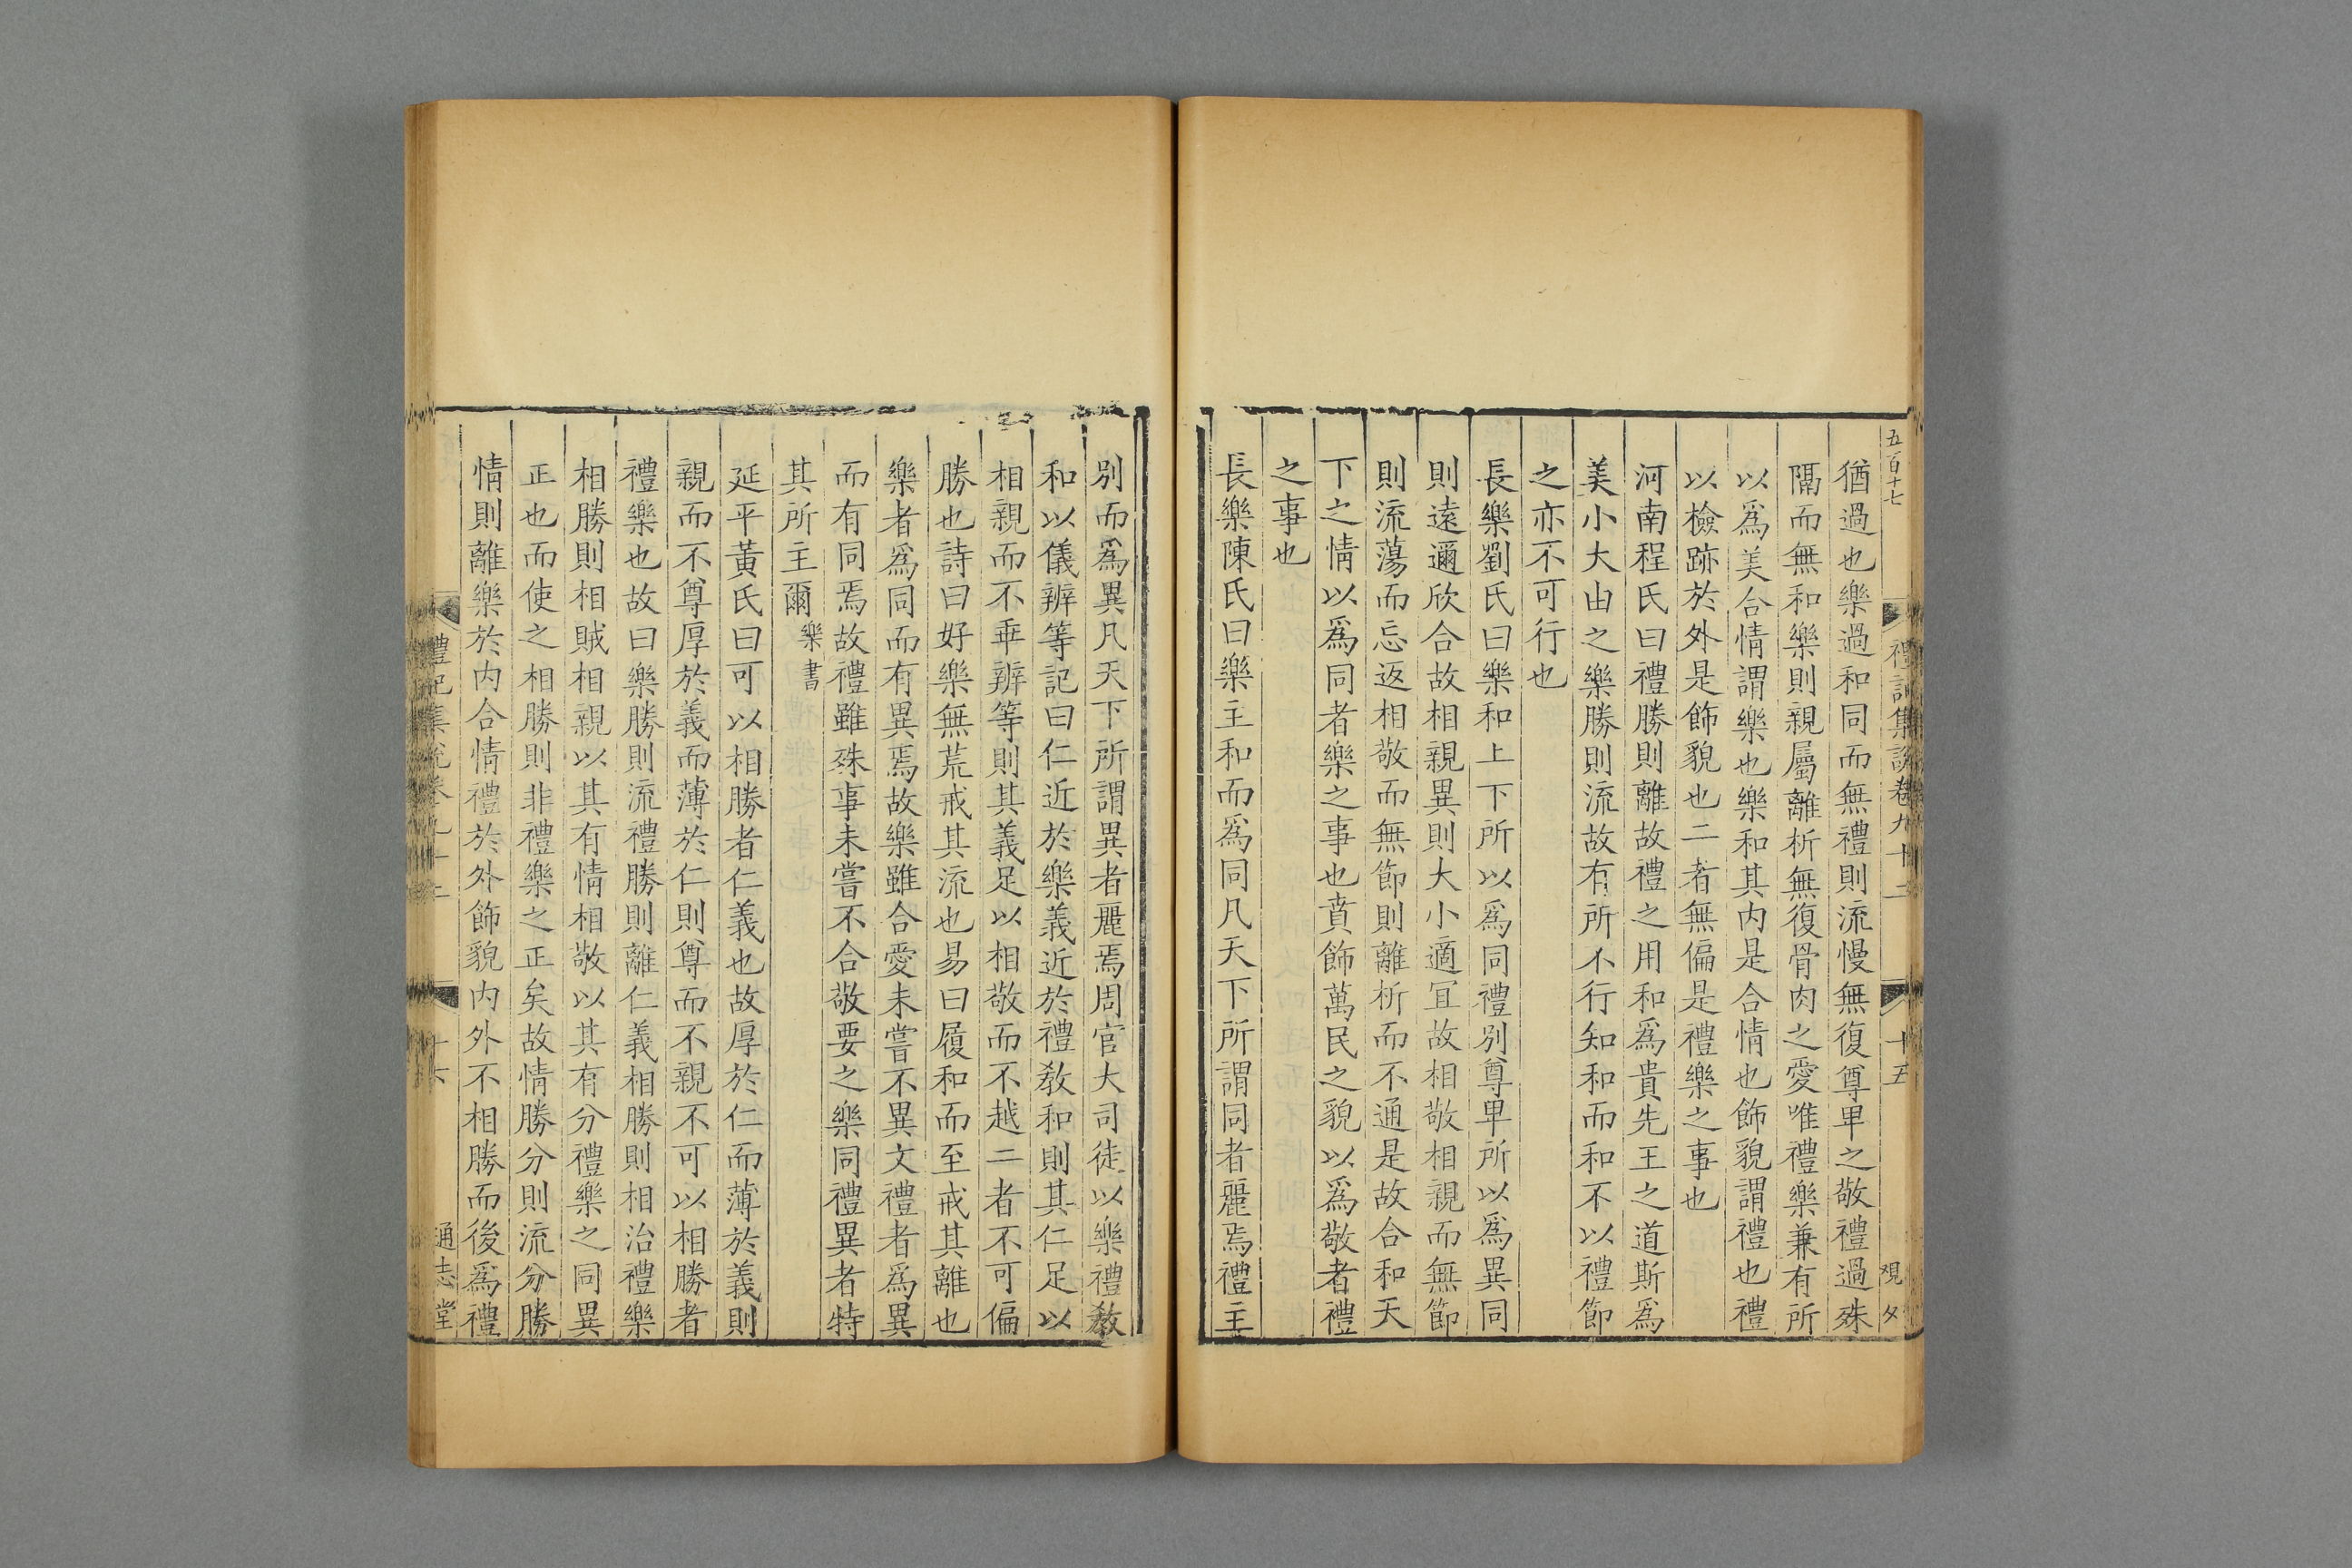 五百十七
禮記集說卷九十二
十五
猶過也樂過和同而無禮則流慢無復尊卑之敬禮過殊
隔而無和樂則親屬離析無復骨肉之愛唯禮樂兼有所
以爲美合情謂樂也樂和其內是合情也飾貌謂禮也禮
以檢跡於外是飾貌也二者無偏是禮樂之事也
河南程氏曰禮勝則離故禮之用和爲貴先王之道斯爲
美小大由之樂勝則流故有所不行知和而和不以禮節
之亦不可行也
長樂劉氏曰樂和上下所以爲同禮別尊卑所以爲異同
則遠邇欣合故相親異則大小適宜故相敬相親而無節
則流蕩而忘返相敬而無節則離析而不通是故合和天
下之情以爲同者樂之事也賁飾萬民之貌以爲敬者禮
之事也
長樂陳氏曰樂主和而爲同凡天下所謂同者麗焉禮主
別而爲異凡天下所謂異者麗焉周官大司徒以樂禮敎
和以儀辨等記曰仁近於樂義近於禮敎和則其仁足以
相親而不乖辨等則其義足以相敬而不越二者不可偏
勝也詩曰好樂無荒戒其流也易曰履和而至戒其離也
樂者爲同而有異焉故樂雖合愛未嘗不異文禮者爲異
而有同焉故禮雖殊事未嘗不合敬要之樂同禮異者特
其所主爾樂書
延平黃氏曰可以相勝者仁義也故厚於仁而薄於義則
親而不尊厚於義而薄於仁則尊而不親不可以相勝者
禮樂也故曰樂勝則流禮勝則離仁義相勝則相治禮樂
相勝則相賊相親以其有情相敬以其有分禮樂之同異
正也而使之相勝則非禮樂之正矣故情勝分則流分勝
情則離樂於內合情禮於外飾貌內外不相勝而後爲禮
禮記集說卷九十二
十六
通志堂